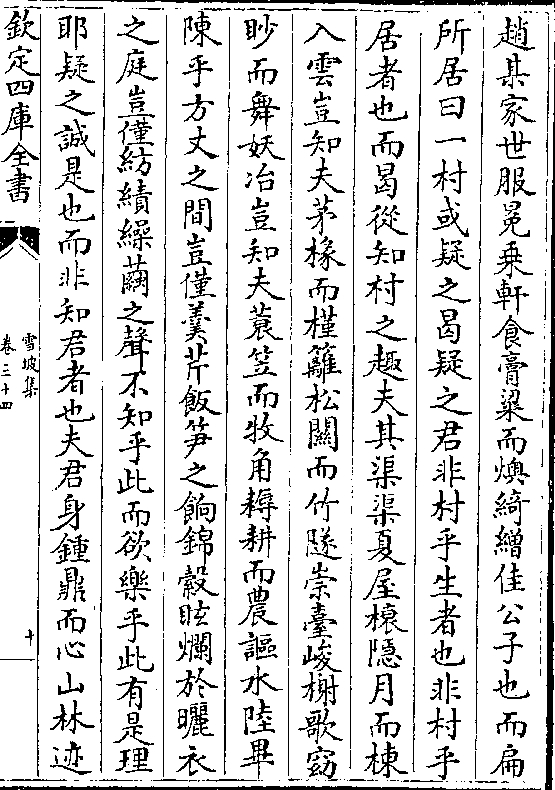 趙某家世服冕乗軒食膏粱而燠綺繒佳公子也而扁
所居曰一村或疑之曷疑之君非村乎生者也非村乎
居者也而曷從知村之趣夫其渠渠夏屋榱隠月而棟
入雲豈知夫茅椽而槿籬松關而竹隧崇臺峻榭歌窈
眇而舞妖冶豈知夫蓑笠而牧角耨耕而農謳水陸畢
陳乎方丈之間豈僅羮芹飯笋之餉錦縠眩爛於曬衣
之庭豈僅紡績繰繭之聲不知乎此而欲樂乎此有是理
耶疑之誠是也而非知君者也夫君身鍾鼎而心山林迹
欽定四庫全書
雪坡集
卷三十四
十